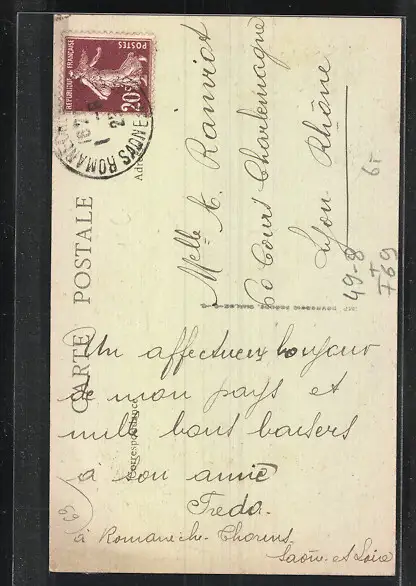 RÉPUBLIQUE FRANÇAISE
POSTES
20c
ROMANÈCHE
CARTE POSTALE
Correspondance
Adre
Melle A. Ranviot
60 Cours Charlemagne
Lyon Rhône
6F
49-8
T
769
Un affectueux bonjour
de mon pays et
mille bons baisers
à son amie
Freda.
à Romanèche-Thorins
Saône-et-Loire